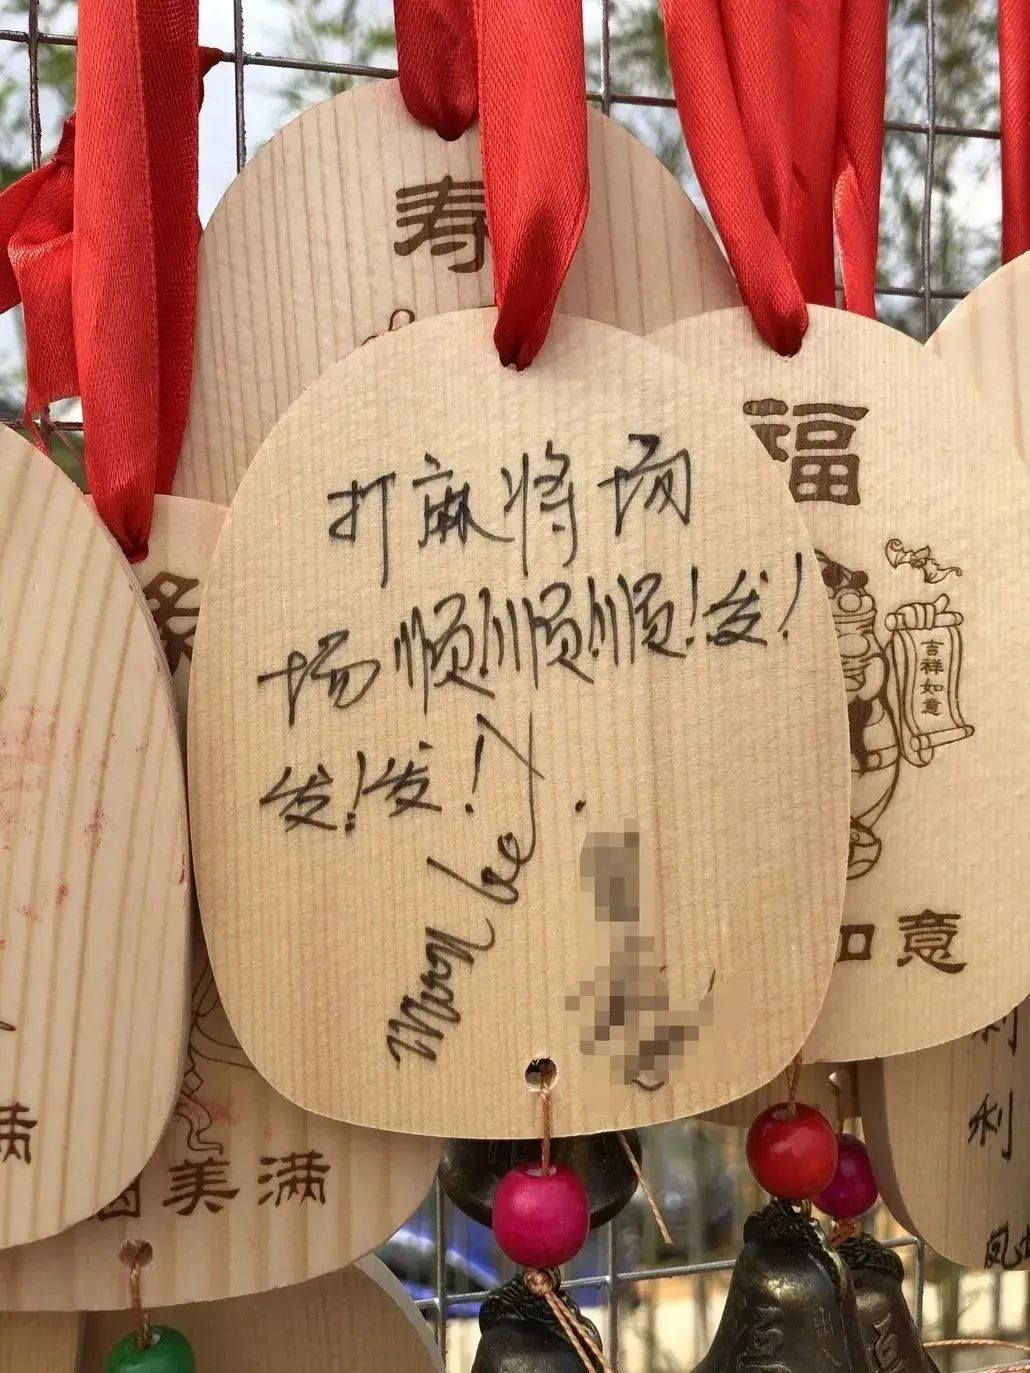 寿
福
吉祥如意
打麻将场
场顺!顺!顺!发!
发!发!
如意
美满
满
利